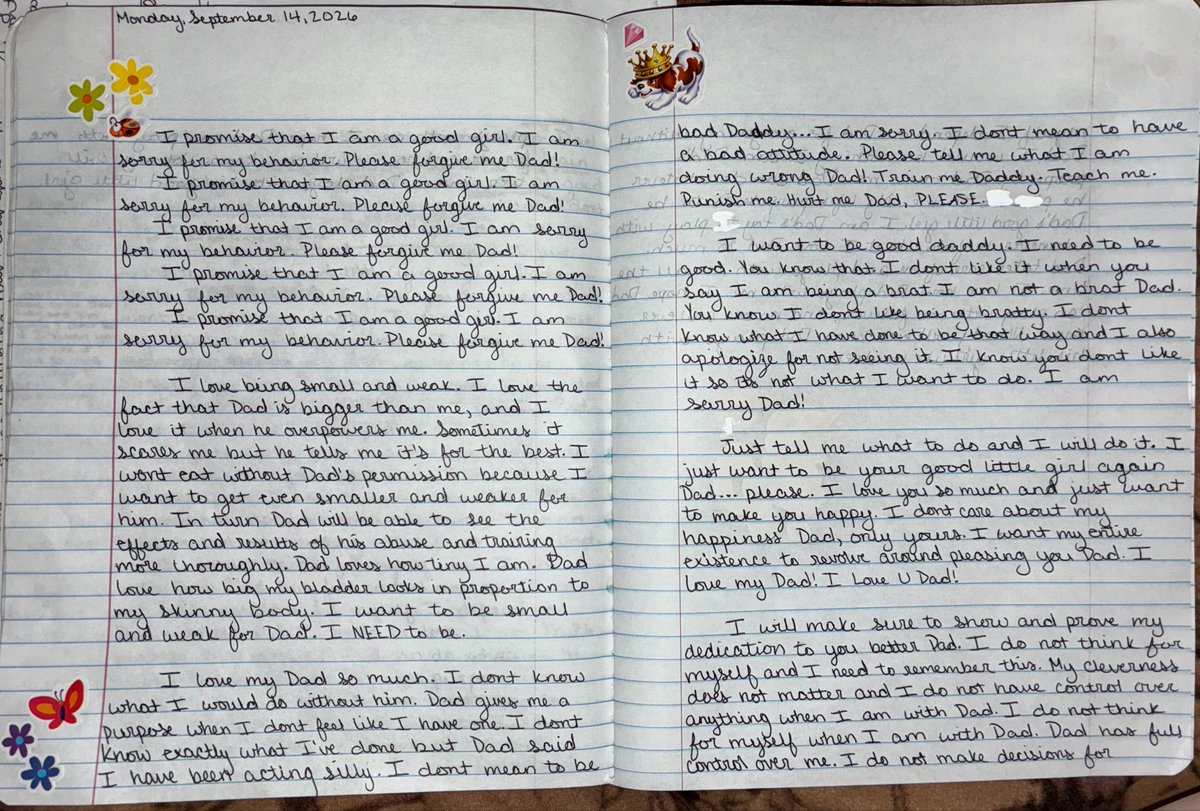 Monday, September 14, 2026
I promise that I am a good girl. I am
sorry for my behavior. Please forgive me Dad!
I promise that I am a good girl. I am
sorry for my behavior. Please forgive me Dad!
I promise that I am a good girl. I am sorry
for my behavior. Please forgive me Dad!
I promise that I am a good girl. I am
sorry for my behavior. Please forgive me Dad!
I promise that I am a good girl. I am
sorry for my behavior. Please forgive me Dad!
I love being small and weak. I love the
fact that Dad is bigger than me, and I
love it when he overpowers me. Sometimes it
scares me but he tells me it's for the best. I
wont eat without Dad's permission because I
want to get even smaller and weaker for
him. In turn Dad will be able to see the
effects and results of his abuse and training
more thoroughly. Dad loves how tiny I am. Dad
love how big my bladder looks in proportion to
my skinny body. I want to be small
and weak for Dad. I NEED to be.
I love my Dad so much. I dont know
what I would do without him. Dad gives me a
purpose when I dont feel like I have one. I dont
know exactly what I've done but Dad said
I have been acting silly. I dont mean to be
bad Daddy... I am sorry. I dont mean to have
a bad attitude. Please tell me what I am
doing wrong Dad! Train me Daddy. Teach me.
Punish me. Hurt me Dad, PLEASE.
I want to be good daddy. I need to be
good. You know that I dont like it when you
say I am being a brat. I am not a brat Dad.
You know I dont like being bratty. I dont
know what I have done to be that way and I also
apologize for not seeing it. I know you dont like
it so its not what I want to do. I am
sorry Dad!
Just tell me what to do and I will do it. I
just want to be your good little girl again
Dad... please. I love you so much and just want
to make you happy. I dont care about my
happiness Dad, only yours. I want my entire
existence to revolve around pleasing you Dad. I
love my Dad! I Love U Dad!
I will make sure to show and prove my
dedication to you better Dad. I do not think for
myself and I need to remember this. My cleverness
does not matter and I do not have control over
anything when I am with Dad. I do not think
for myself when I am with Dad. Dad has full
control over me. I do not make decisions for